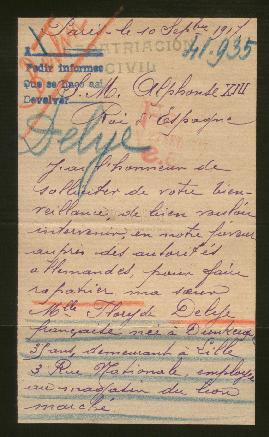 Paris - le 10 Septbre 1917
REPATRIACIÓN
CIVIL
41.935
1
Pedir informes
Que se haga así
Devolver
S. M. Alphonse XIII
Roi d'Espagne
Delye
J'ai l'honneur de
solliciter de votre bien-
veillance, de bien vouloir
intervenir, en notre faveur
auprès des autorités
allemandes, pour faire
rapatrier ma sœur
Mlle Delye
française née à Dunkerque
ans, demeurant à Lille
3 Rue Nationale, employée
au magasin du bon
marché